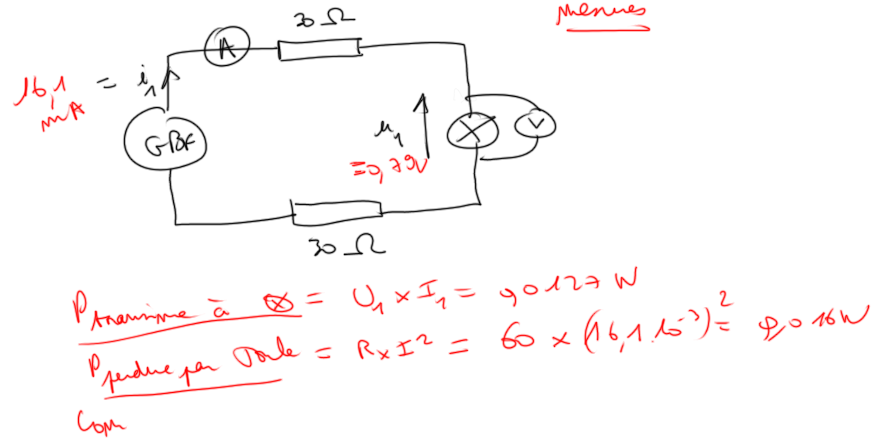 Mesures
30 Ω
A
16,1 mA = i₁
GBF
u₁
=0,79V
V
30 Ω
P transmise à ⊗ = U₁ × I₁ = 0,0127 W
P perdue par Joule = R × I² = 60 × (16,1.10⁻³)² = 0,016 W
Com